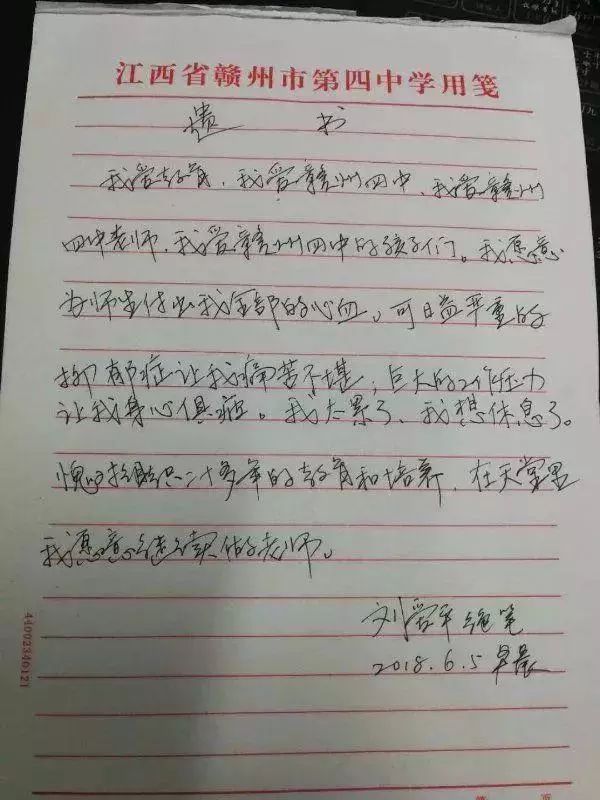 江西省赣州市第四中学用笺
遗 书
我爱教育，我爱赣州四中，我爱赣州
四中老师，我爱赣州四中的孩子们。我愿意
为师生付出我全部的心血。可日益严重的
抑郁症让我痛苦不堪；巨大的工作压力
让我身心俱疲。我太累了，我想休息了。
愧对组织二十多年的教育和培养，在天堂里
我愿意继续做老师。
刘爱平 绝笔
2018.6.5 早晨
44002340121